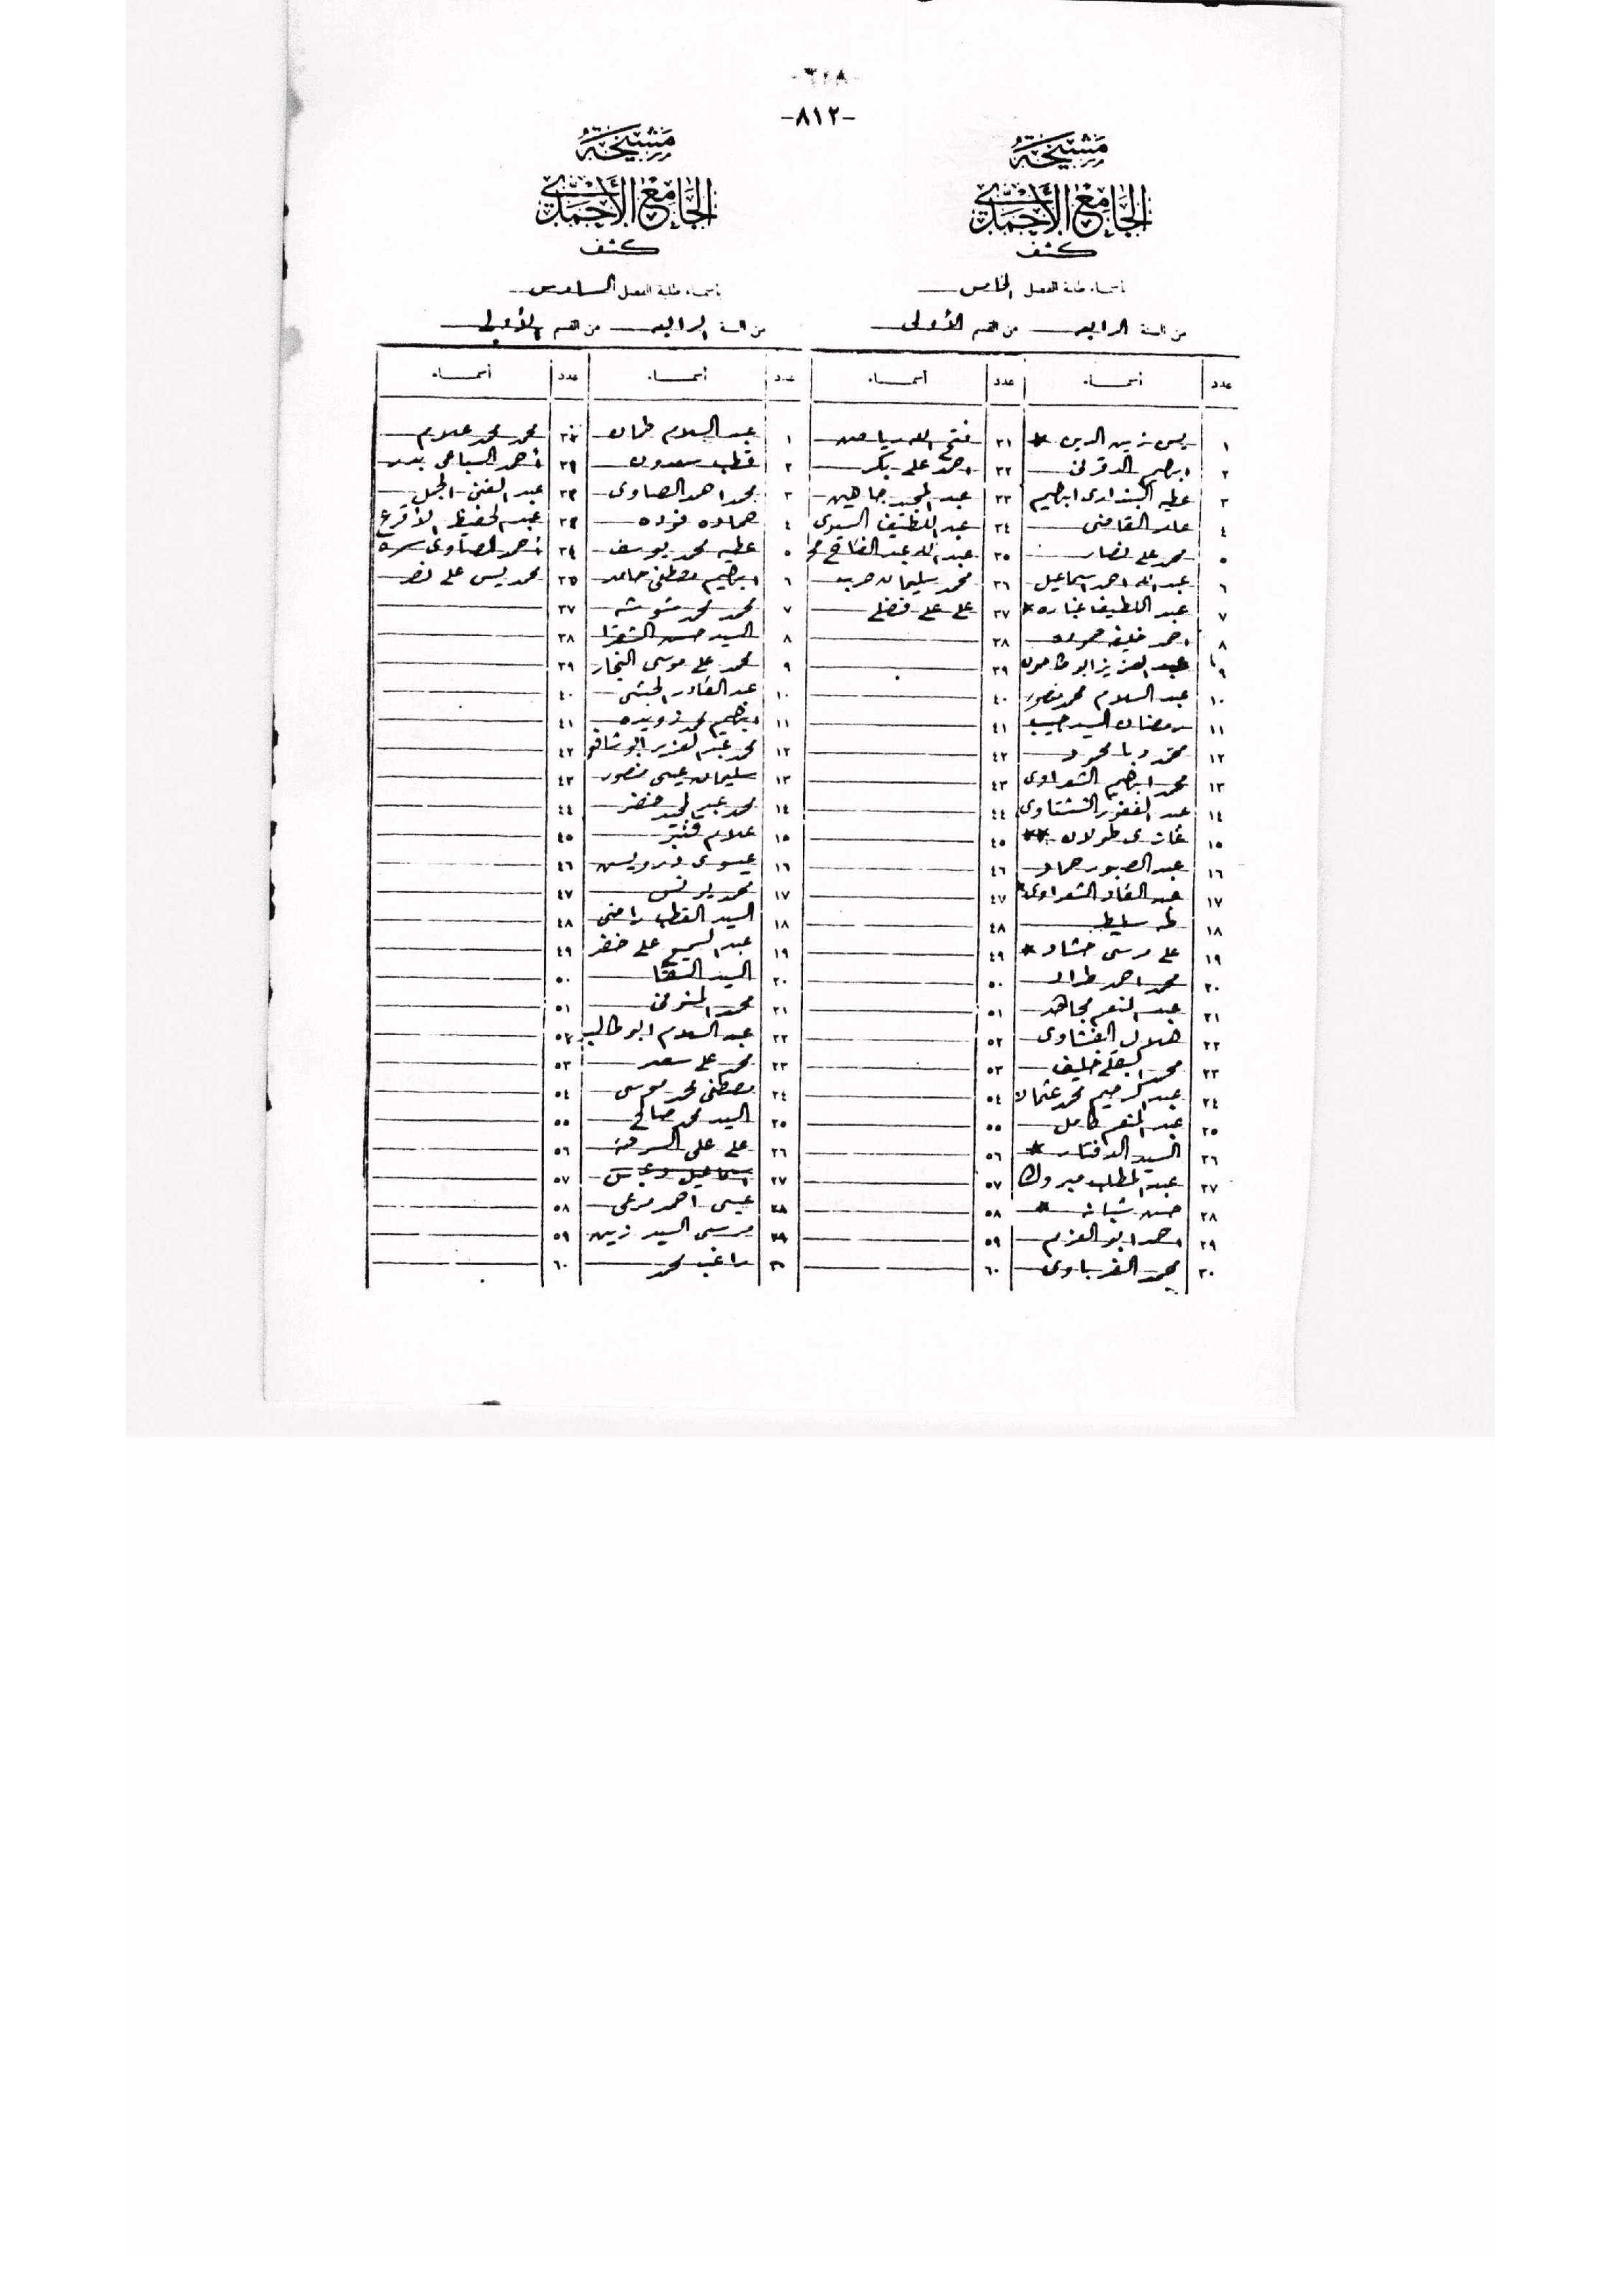 -٨١٢-
مشيخة
الجامع الأحمدى
كشف
بأسماء طلبة الفصل الخامس
من السنة الرابعة من القسم الأولى
عدد أسماء عدد أسماء
١ يس زين الدين * ٣١ فتح الله
٢ ابرهيم ٣٢ احمد على بكر
٣ عطيه ابراهيم ٣٣ عبد المجيد جاهين
٤ القاضى ٣٤ عبد اللطيف السيوى
٥ محمد على نصار ٣٥ عبد الله عبد الفتاح
٦ عبد الله احمد اسماعيل ٣٦ محمد سليمان حرب
٧ عبد اللطيف * ٣٧ على على فضلى
٨ احمد ٣٨
٩ عبد العزيز ابو ٣٩
١٠ عبد السلام محمد منصور ٤٠
١١ رمضان السيد حبيب ٤١
١٢ محمود ٤٢
١٣ محمد ابرهيم الشعراوى ٤٣
١٤ عبد الغفور الششتاوى ٤٤
١٥ غازى طولان ** ٤٥
١٦ عبد الصبور حماد ٤٦
١٧ عبد القادر الشعراوى * ٤٧
١٨ طه سليط ٤٨
١٩ على مرسى حشاد * ٤٩
٢٠ محمد احمد طراد ٥٠
٢١ عبد المنعم مجاهد ٥١
٢٢ هلال القشاوى ٥٢
٢٣ محمد خليف ٥٣
٢٤ عبد الرحيم محمد عثمان ٥٤
٢٥ عبد المنعم كامل ٥٥
٢٦ السيد الدفتار * ٥٦
٢٧ عبد المطلب مبروك ٥٧
٢٨ حسن شبانه * ٥٨
٢٩ احمد ابو العزم ٥٩
٣٠ محمد الغرباوى ٦٠
مشيخة
الجامع الأحمدى
كشف
بأسماء طلبة الفصل السادس
من السنة الرابعة من القسم الأولى
عدد أسماء عدد أسماء
١ عبد السلام طمان محمد محمد علام
٢ قطب سعدون أحمد السباعى بدر
٣ محمد احمد الصاوى عبد الغنى الجمل
٤ حماده فوده عبد الحفيظ الأقرع
٥ عطيه محمد يوسف ٣٤ أحمد الصاوى سمره
٦ ابراهيم مصطفى حامد ٣٥ محمد يس على نصر
٧ محمد محمد شوشه ٣٧
٨ السيد حسن الشقرا ٣٨
٩ محمد على موسى النجار ٣٩
١٠ عبد القادر الحبشى ٤٠
١١ ابرهيم محمد زويده ٤١
١٢ محمد عبد العزيز ابو شافعى ٤٢
١٣ سليمان عيسى منصور ٤٣
١٤ محمد عبد المجيد خضر ٤٤
١٥ علام قنبر ٤٥
١٦ عيسوى درويش ٤٦
١٧ محمد يونس ٤٧
١٨ السيد القطب راضى ٤٨
١٩ عبد السميع على خضر ٤٩
٢٠ السيد السقا ٥٠
٢١ محمد المنوفى ٥١
٢٢ عبد السلام ابو طالب ٥٢
٢٣ محمد على سعد ٥٣
٢٤ مصطفى محمد موسى ٥٤
٢٥ السيد محمد صالح ٥٥
٢٦ على على ٥٦
٢٧ اسماعيل ٥٧
٢٨ عيسى احمد مرعى ٥٨
٢٩ مرسى السيد زين ٥٩
٣٠ راغب محمد ٦٠